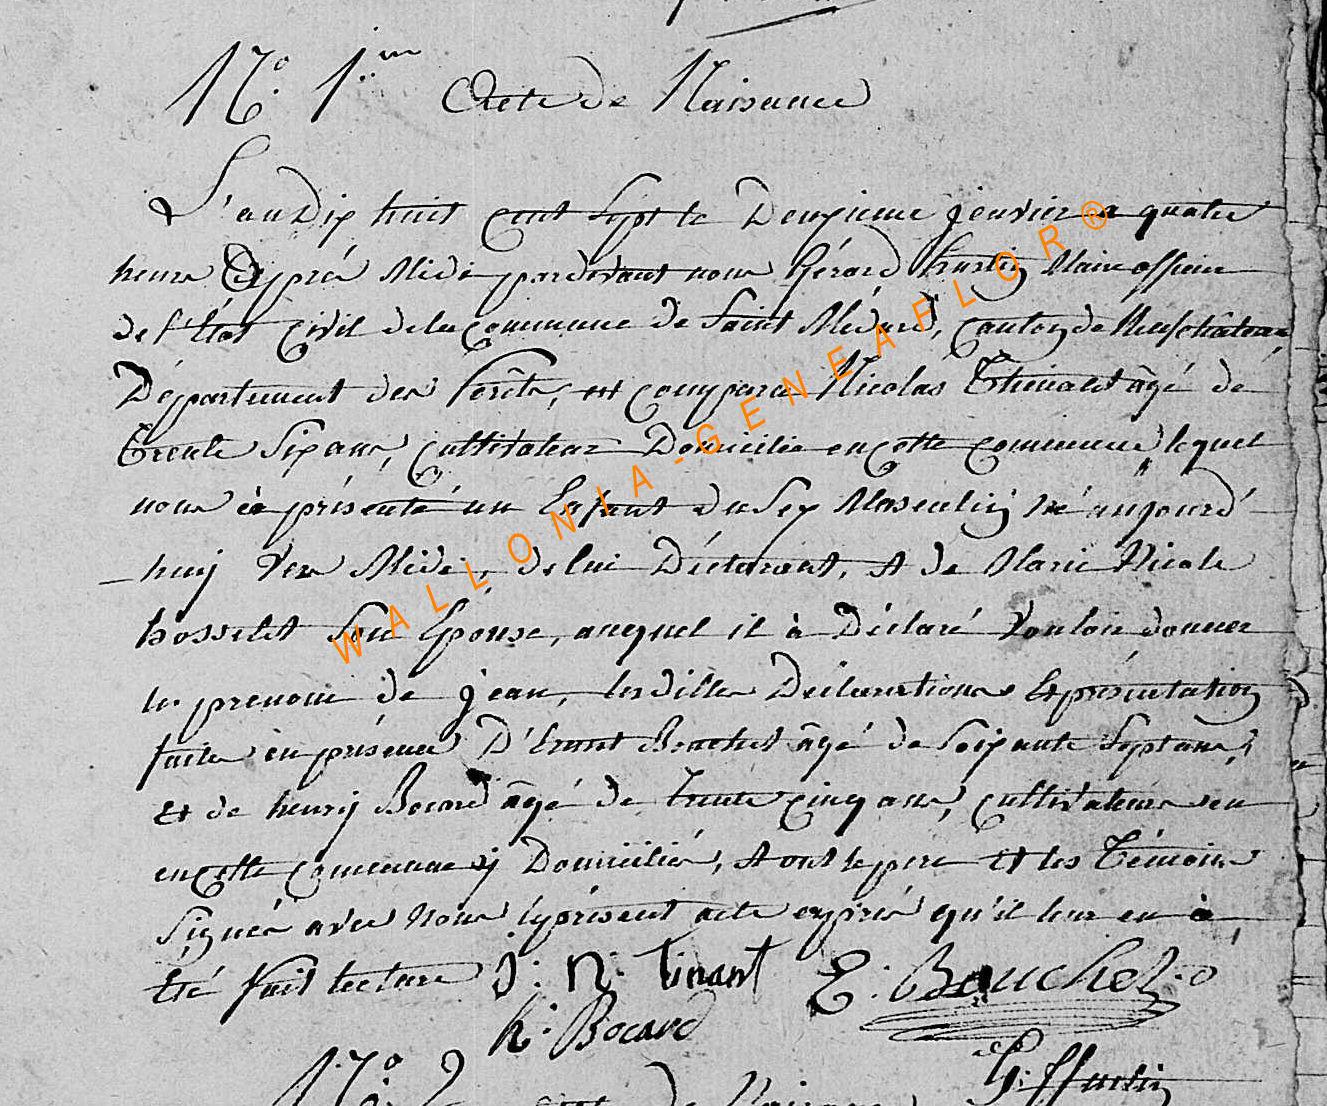 N.o 1.er
Acte de Naissance
L'an Dix huit cent Sept le Deuxieme jenvier a quatre
heure Apprés Midi pardevant nous Gérard hustin Maire officier
de l'État Civil de la commune de Saint Médard, canton de Neufchâteau
Département des Forêts, est comparu Nicolas Thinant âgé de
trente Six ans, Cultivateur Domicilié en cette commune lequel
nous à présenté un Enfant du Sex Masculin né aujourd'
huij Ver Midi, de lui Déclarant, et de Marie Nicole
hosselet Son Epouse, auquel il à Déclaré Vouloir donner
le prenom de jean, lesdittes Déclarations Et présentation
faite en présence D' Bouchet âgé de Soixante Sept ans,
Et de henrij Bocard âgé de trente cinq ans, cultivateurs
en cette commune ij Domiciliés, et ont le pere et les Témoins
Signés avec Nous le présent acte après qu'il leur en à
été fait lecture J: N: Tinant E: Bouchet
h: Bocard
G: hustin
N.o 2
acte de Naissance
WALLONIA-GENEAFLOR®